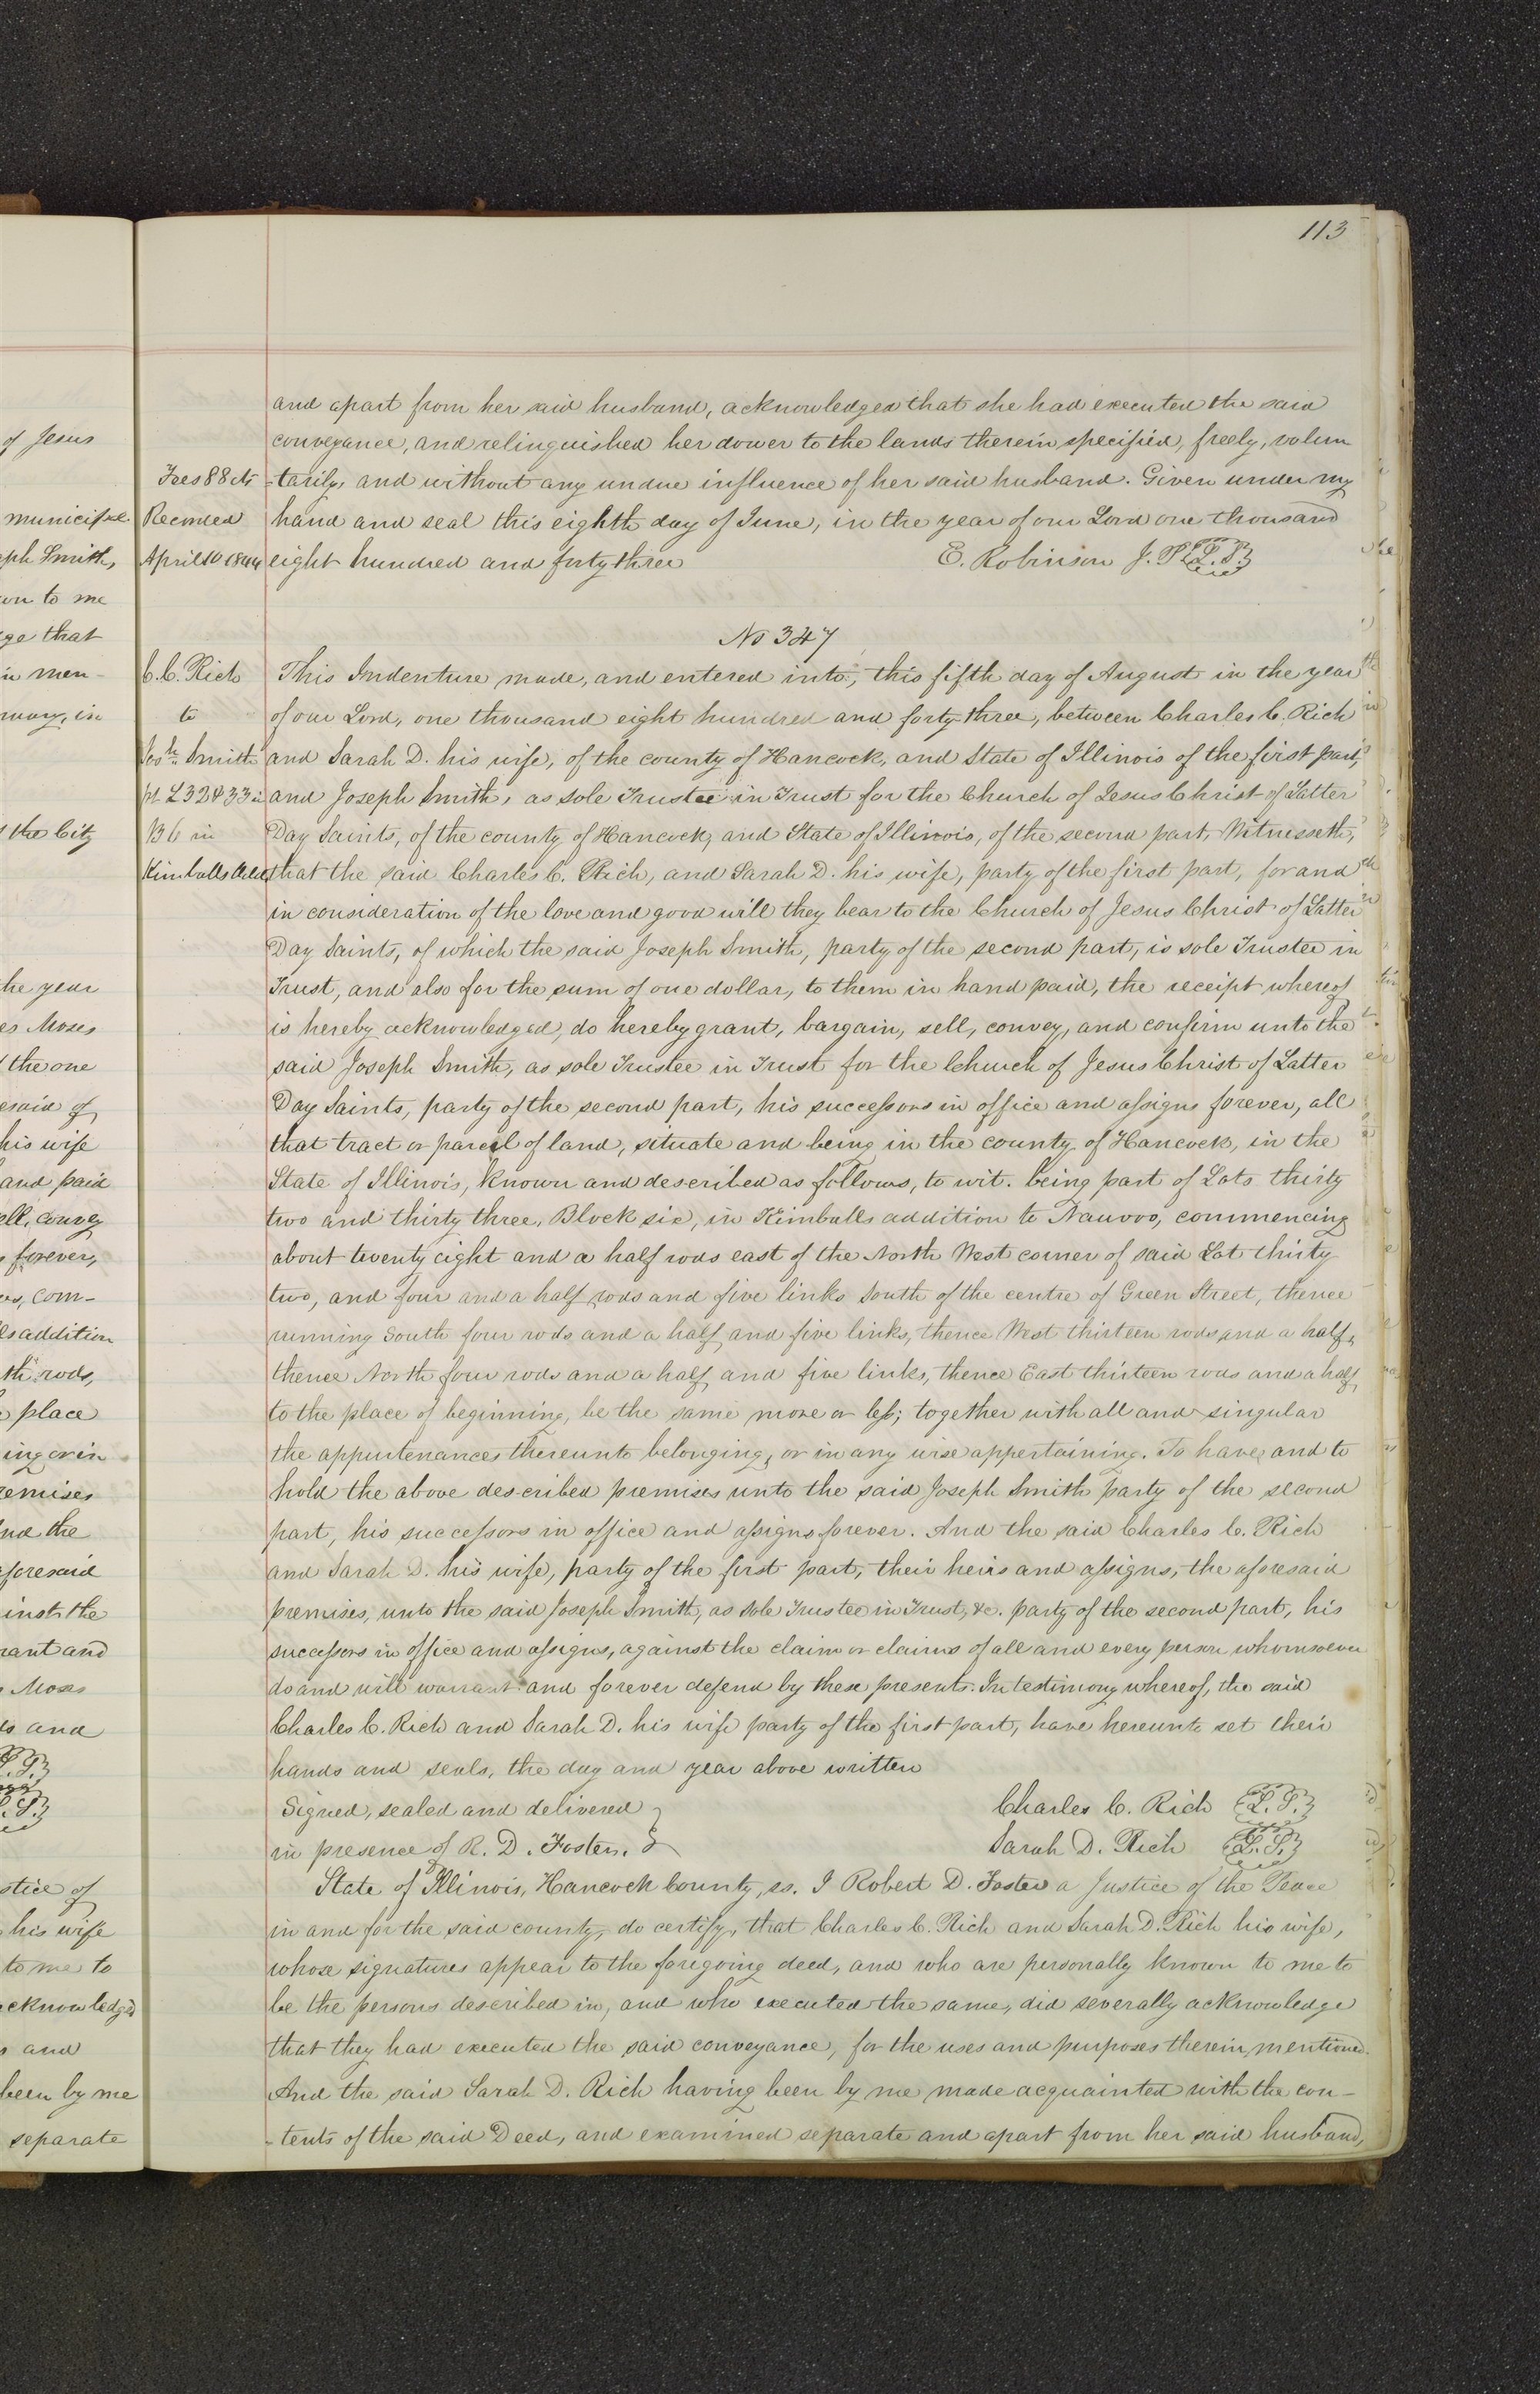 113
and apart from her said husband, acknowledged that she had executed the said
conveyance, and relinquished her dower to the lands therein specified, freely, volun
-tarily, and without any undue influence of her said husband. Given under my
hand and seal this eighth day of June, in the year of our Lord one thousand
eight hundred and forty three E. Robinson J. P. L. S.
Fees 88 cts
Recorded
April 10 1844
No 347
C. C. Rich
to
Josh. Smith
pt L 32 & 33 in
B 6 in
Kimballs Add
This Indenture made, and entered into, this fifth day of August in the year
of our Lord, one thousand eight hundred and forty-three, between Charles C. Rich
and Sarah D. his wife, of the county of Hancock, and State of Illinois of the first part,
and Joseph Smith, as sole Trustee in Trust for the Church of Jesus Christ of Latter
Day Saints, of the county of Hancock, and State of Illinois, of the second part, Witnesseth,
that the said Charles C. Rich, and Sarah D. his wife, party of the first part, for and
in consideration of the love and good will they bear to the Church of Jesus Christ of Latter
Day Saints, of which the said Joseph Smith, party of the second part, is sole Trustee in
Trust, and also for the sum of one dollar, to them in hand paid, the receipt whereof
is hereby acknowledged, do hereby grant, bargain, sell, convey, and confirm unto the
said Joseph Smith, as sole Trustee in Trust for the Church of Jesus Christ of Latter
Day Saints, party of the second part, his successors in office and assigns forever, all
that tract or parcel of land, situate and being in the county of Hancock, in the
State of Illinois, known and described as follows, to wit. being part of Lots thirty
two and thirty three, Block six, in Kimballs addition to Nauvoo, commencing
about twenty eight and a half rods east of the North West corner of said Lot thirty
two, and four and a half rods and five links South of the centre of Green Street, thence
running South four rods and a half, and five links, thence West thirteen rods and a half,
thence North four rods and a half, and five links, thence East thirteen rods and a half,
to the place of beginning, be the same more or less; together with all and singular
the appurtenances thereunto belonging, or in any wise appertaining. To have and to
hold the above described premises unto the said Joseph Smith party of the second
part, his successors in office and assigns forever. And the said Charles C. Rich
and Sarah D. his wife, party of the first part, their heirs and assigns, the aforesaid
premises, unto the said Joseph Smith, as sole Trustee in Trust, &c. party of the second part, his
successors in office and assigns, against the claim or claims of all and every person whomsoever
do and will warrant and forever defend by these presents. In testimony whereof, the said
Charles C. Rich and Sarah D. his wife party of the first part, have hereunto set their
hands and seals, the day and year above written
Signed, sealed and delivered Charles C. Rich L. S.
in presence of R. D. Foster. Sarah D. Rich L. S.
State of Illinois, Hancock County, ss. I Robert D. Foster a Justice of the Peace
in and for the said county, do certify, that Charles C. Rich and Sarah D. Rich his wife,
whose signatures appear to the foregoing deed, and who are personally known to me to
be the persons described in, and who executed the same, did severally acknowledge
that they had executed the said conveyance, for the uses and purposes therein mentioned.
And the said Sarah D. Rich having been by me made acquainted with the con-
-tents of the said Deed, and examined separate and apart from her said husband,
of Jesus
municipal
Smith,
to me
that
men-
in
the City
the year
Moses
the one
of
his wife
and paid
convey
forever,
com-
addition
rods,
place
or in
and the
aforesaid
the
and
Moses
and
L. S.
L. S.
of
his wife
to me to
and
been by me
separate